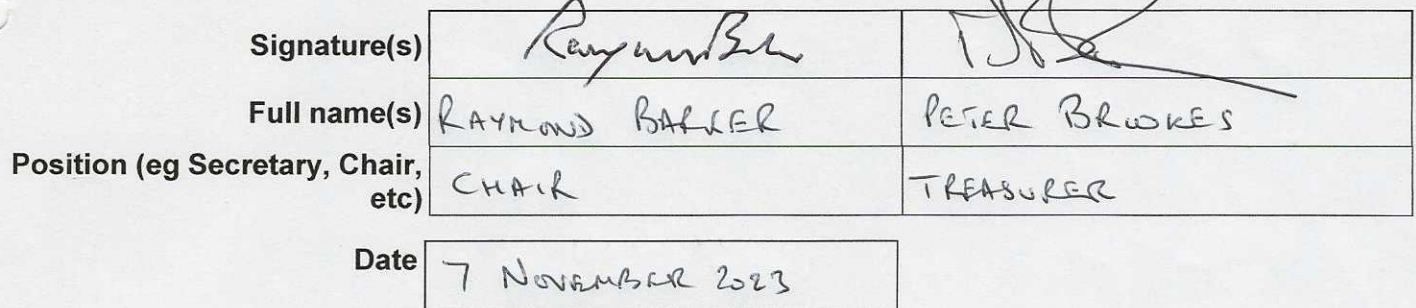 Signature(s)
Full name(s) RAYMOND BARKER PETER BROOKES
Position (eg Secretary, Chair,
etc) CHAIR TREASURER
Date 7 NOVEMBER 2023